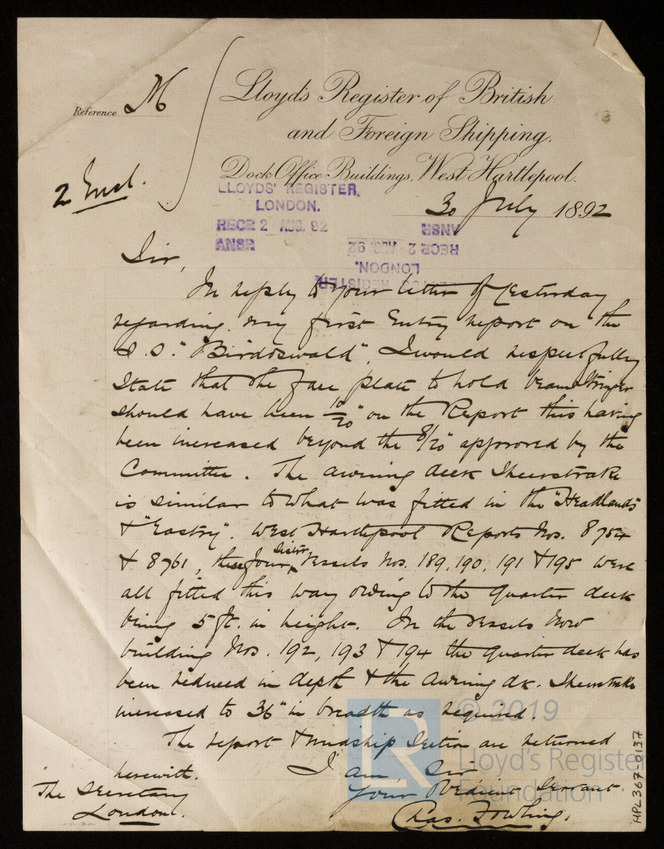 Reference M
Lloyds Register of British
and Foreign Shipping.
Dock Office Buildings, West Hartlepool.
2 Encl.
LLOYDS' REGISTER,
LONDON.
RECD 2 AUG. 92
ANSR
ANSR
RECD 2 AUG. 92
LONDON.
LLOYDS' REGISTER
30 July 1892
Sir,
In reply to your letter of yesterday
regarding my first Entry report on the
S.S. "Birdoswald", I would respectfully
State that the face plate to hold beam Stringer
should have been 10/20" on the Report this having
been increased beyond the 8/20" approved by the
Committee. The awning deck Sheerstrake
is similar to what was fitted in the "Headlands"
& "Eastry". West Hartlepool Reports Nos. 8754
& 8761, these four Sister Vessels Nos. 189, 190, 191 & 195 were
all fitted this way owing to the quarter deck
being 5 ft. in height. In the Vessels now
building Nos. 192, 193 & 194 the quarter deck has
been reduced in depth & the awning dk. Sheerstrake
increased to 36" in breadth as required.
The report & midship Section are returned
herewith.
I am, Sir
Your Obedient Servant
Chas. Fowling.
The Secretary
London.
© 2019
Lloyd's Register
Foundation
HPL367-0137